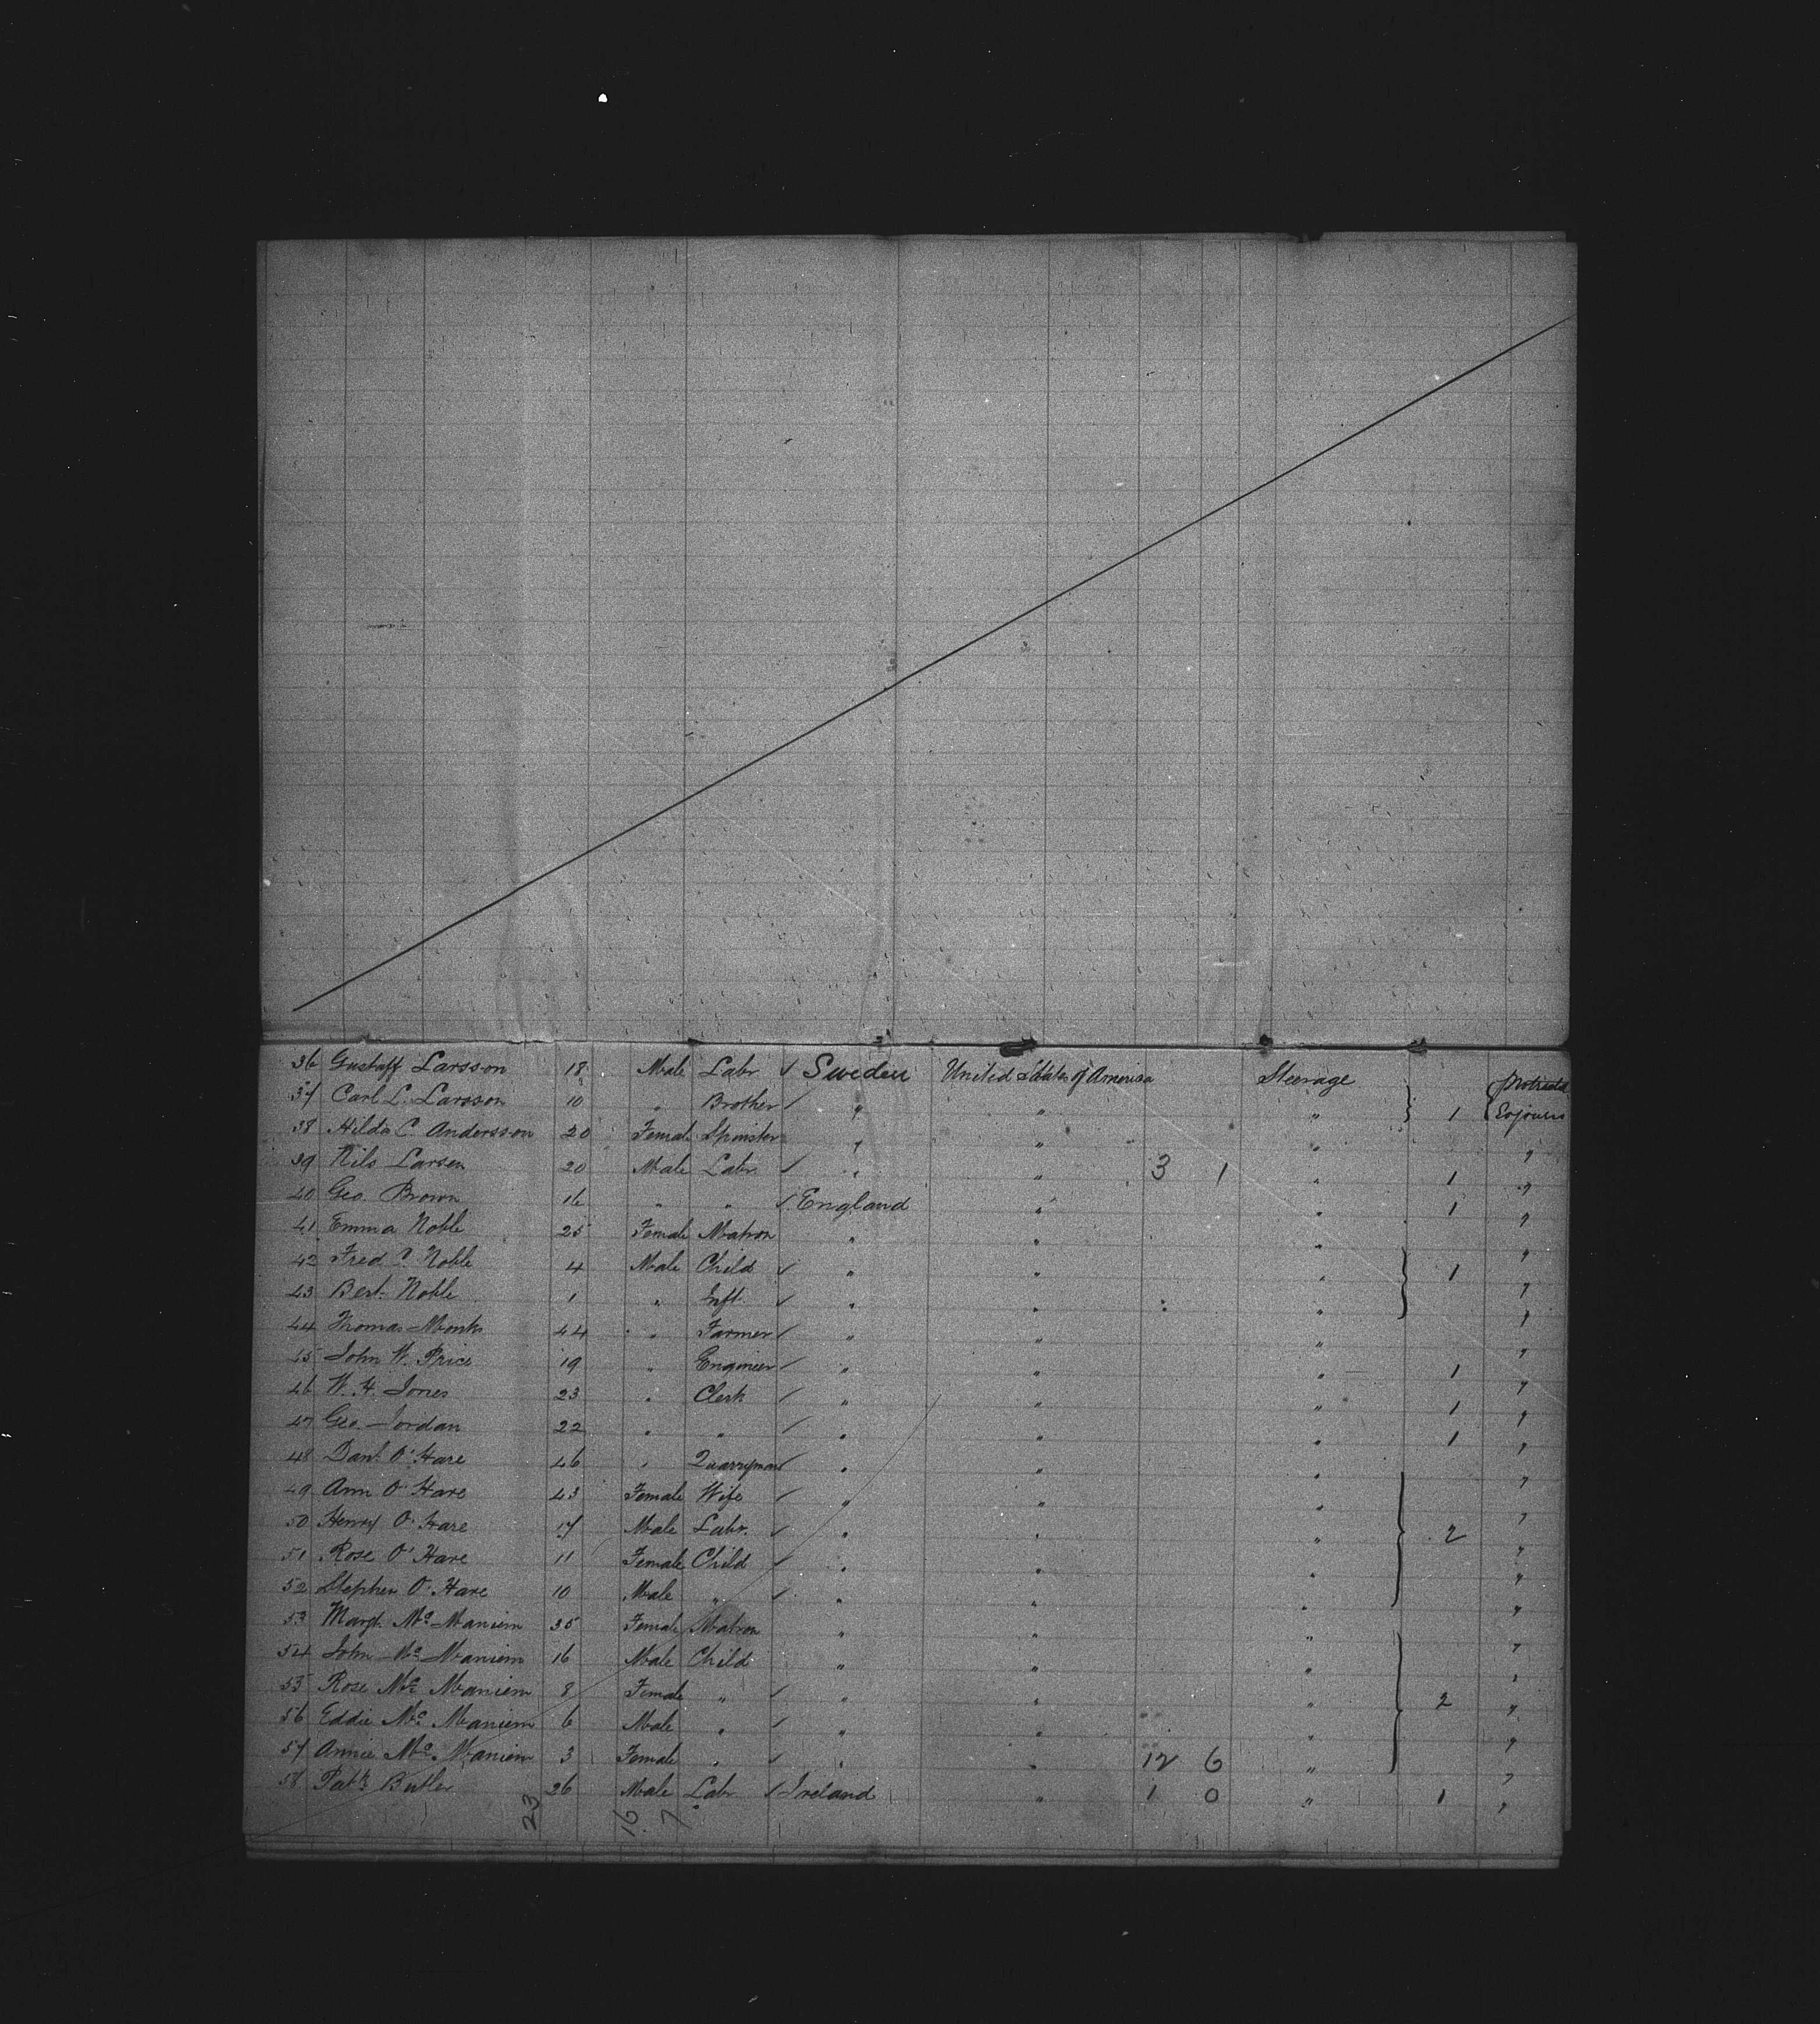 36 Gustaff Larsson 18 Male Labr ✓ Sweden United States of America Steerage Protracted
37 Carl L. Larsson 10 " Brother ✓ " " " } 1 Sojourn
38 Hilda C. Andersson 20 Female Spinster " " " "
39 Nils Larsen 20 Male Labr ✓ " " 3 1 " 1 "
40 Geo. Brown 16 " " ✓ England " " 1 "
41 Emma Noble 25 Female Matron " " " "
42 Fred C Noble 4 Male Child ✓ " " " } 1 "
43 Bert. Noble 1 " Inft. ✓ " " " "
44 Thomas Monks 44 " Farmer ✓ " " " "
45 John W. Price 19 " Engineer ✓ " " " 1 "
46 W. H. Jones 23 " Clerk ✓ " " " 1 "
47 Geo. Jordan 22 " " ✓ " " " 1 "
48 Danl. O'Hare 46 " Quarryman ✓ " " " "
49 Ann O'Hare 43 Female Wife ✓ " " " "
50 Henry O'Hare 17 Male Labr. ✓ " " " } 2 "
51 Rose O'Hare 11 Female Child ✓ " " " "
52 Stephen O'Hare 10 Male " ✓ " " " "
53 Margt. Mc Maniem 35 Female Matron " " " "
54 John Mc Maniem 16 Male Child " " " "
55 Rose Mc Maniem 8 Female " ✓ " " " } 2 "
56 Eddie Mc Maniem 6 Male " ✓ " " " "
57 Annie Mc Maniem 3 Female " ✓ " " 12 6 " "
58 Patk Butler 26 Male Labr ✓ Ireland " 1 0 " 1 "
23 16 7